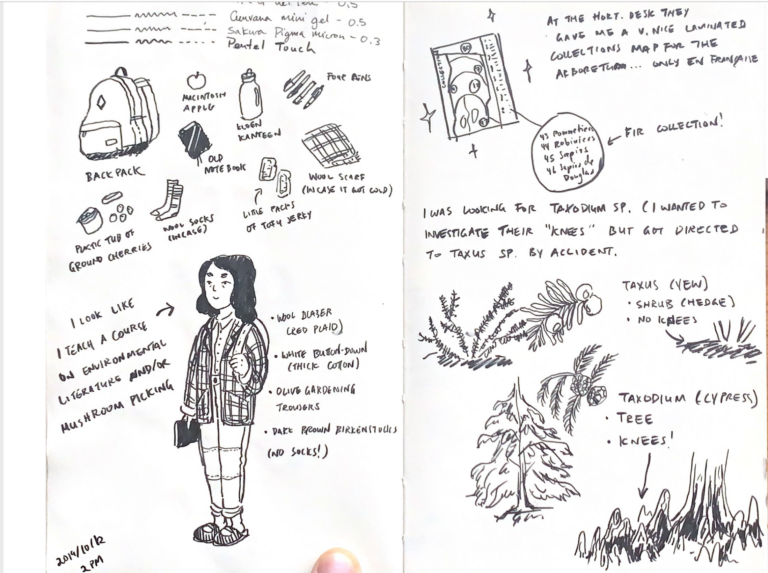 - 0.5
Cuvana mini gel - 0.5
Sakura Pigma micron - 0.3
Pentel Touch
BACKPACK
MACINTOSH
APPLE
KLEEN
KANTEEN
FOUR PENS
OLD
NOTEBOOK
WOOL SCARF
(IN CASE IT GOT COLD)
PLASTIC TUB OF
GROUND CHERRIES
WOOL SOCKS
(IN CASE)
LITTLE PACKS
OF TOFU JERKY
I LOOK LIKE
I TEACH A COURSE
ON ENVIRONMENTAL
LITERATURE AND/OR
MUSHROOM PICKING
• WOOL BLAZER
(RED PLAID)
• WHITE BUTTON-DOWN
(THICK COTTON)
• OLIVE GARDENING
TROUSERS
• DARK BROWN BIRKENSTOCKS
(NO SOCKS!)
2014/10/12
2PM
AT THE HORT. DESK THEY
GAVE ME A V. NICE LAMINATED
COLLECTIONS MAP FOR THE
ARBORETUM... ONLY EN FRANÇAISE
43 Pommetiers
44 Robiniers
45 Sapins
46 Sapins de
Douglas
FIR COLLECTION!
I WAS LOOKING FOR TAXODIUM SP. (I WANTED TO
INVESTIGATE THEIR "KNEES" BUT GOT DIRECTED
TO TAXUS SP. BY ACCIDENT.
TAXUS (YEW)
• SHRUB (HEDGE)
• NO KNEES
TAXODIUM (CYPRESS)
• TREE
• KNEES!